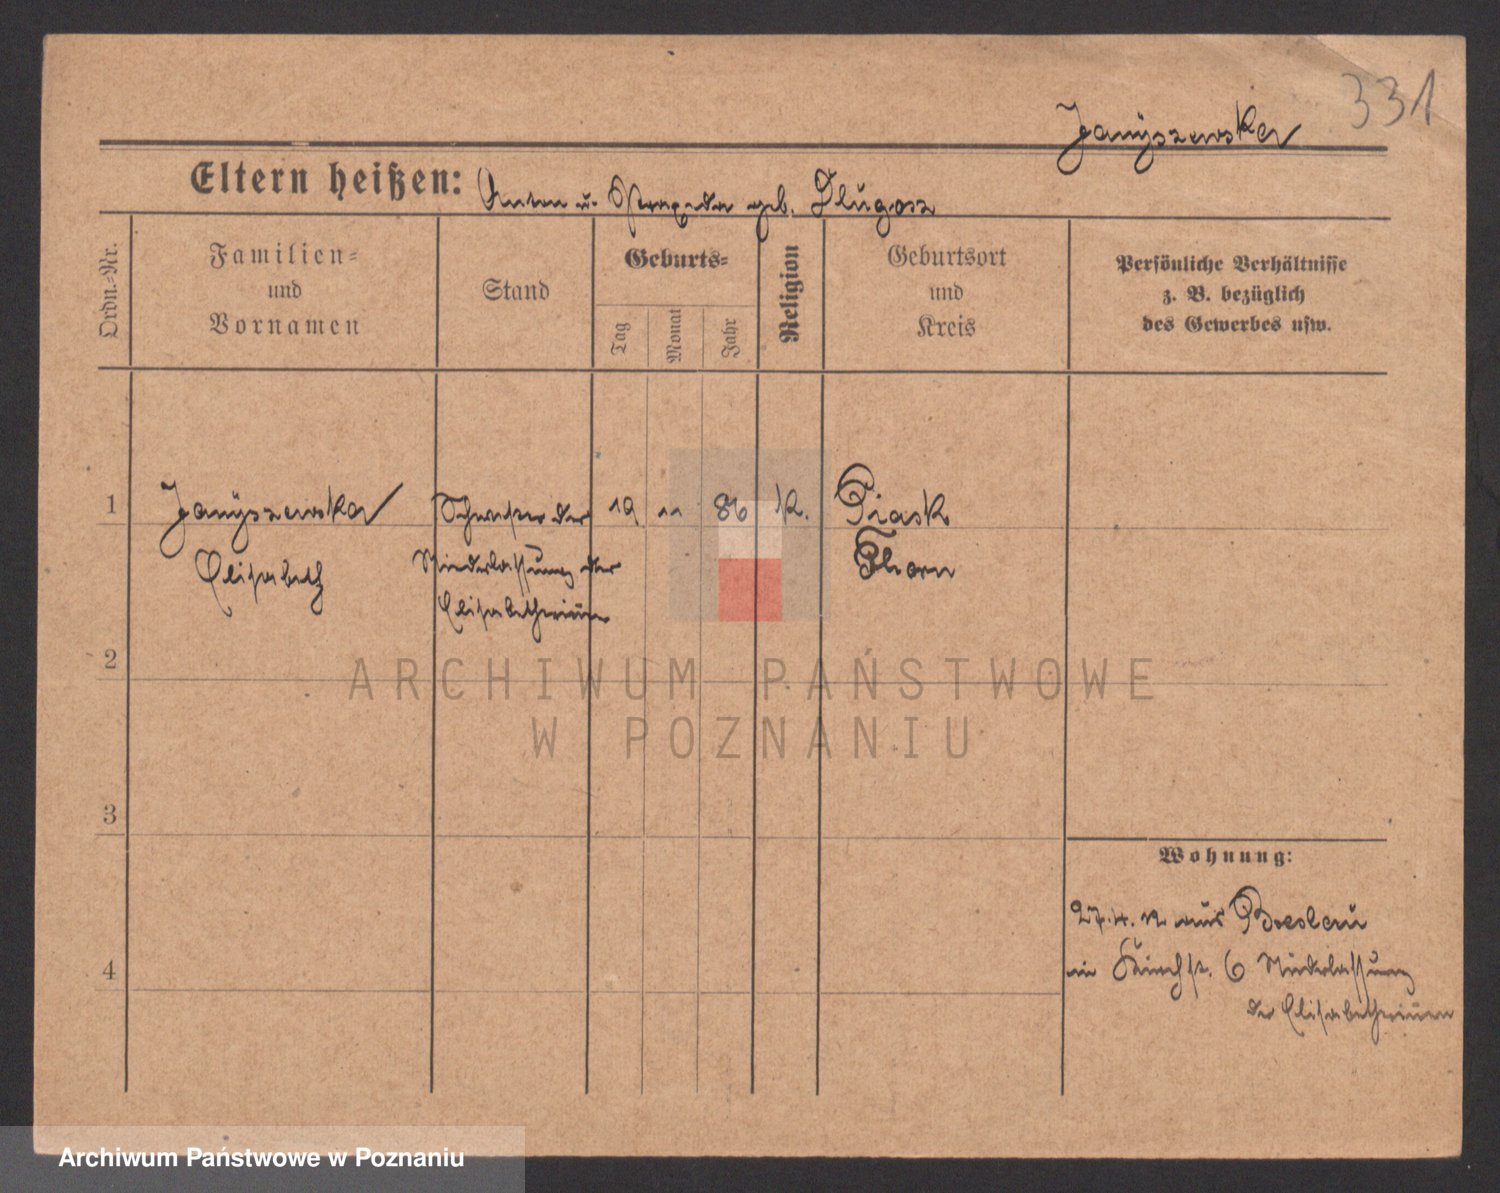 331
Janÿszewska
Eltern heißen: Anton u. Praxeda geb. Dlugosz
Ordn.-Nr.
Familien-
und
Vornamen
Stand
Geburts-
Tag
Monat
Jahr
Religion
Geburtsort
und
Kreis
Persönliche Verhältnisse
z. B. bezüglich
des Gewerbes usw.
1 Janÿszewska Schwester der 19 11 86 K. Piask
Elisabeth Niederlassung der Thorn
Elisabetherinnen
2
3
4
Wohnung:
27.4.12 aus Breslau
in Kirchstr. 6 Niederlassung
der Elisabetherinnen
ARCHIWUM PAŃSTWOWE
W POZNANIU
Archiwum Państwowe w Poznaniu